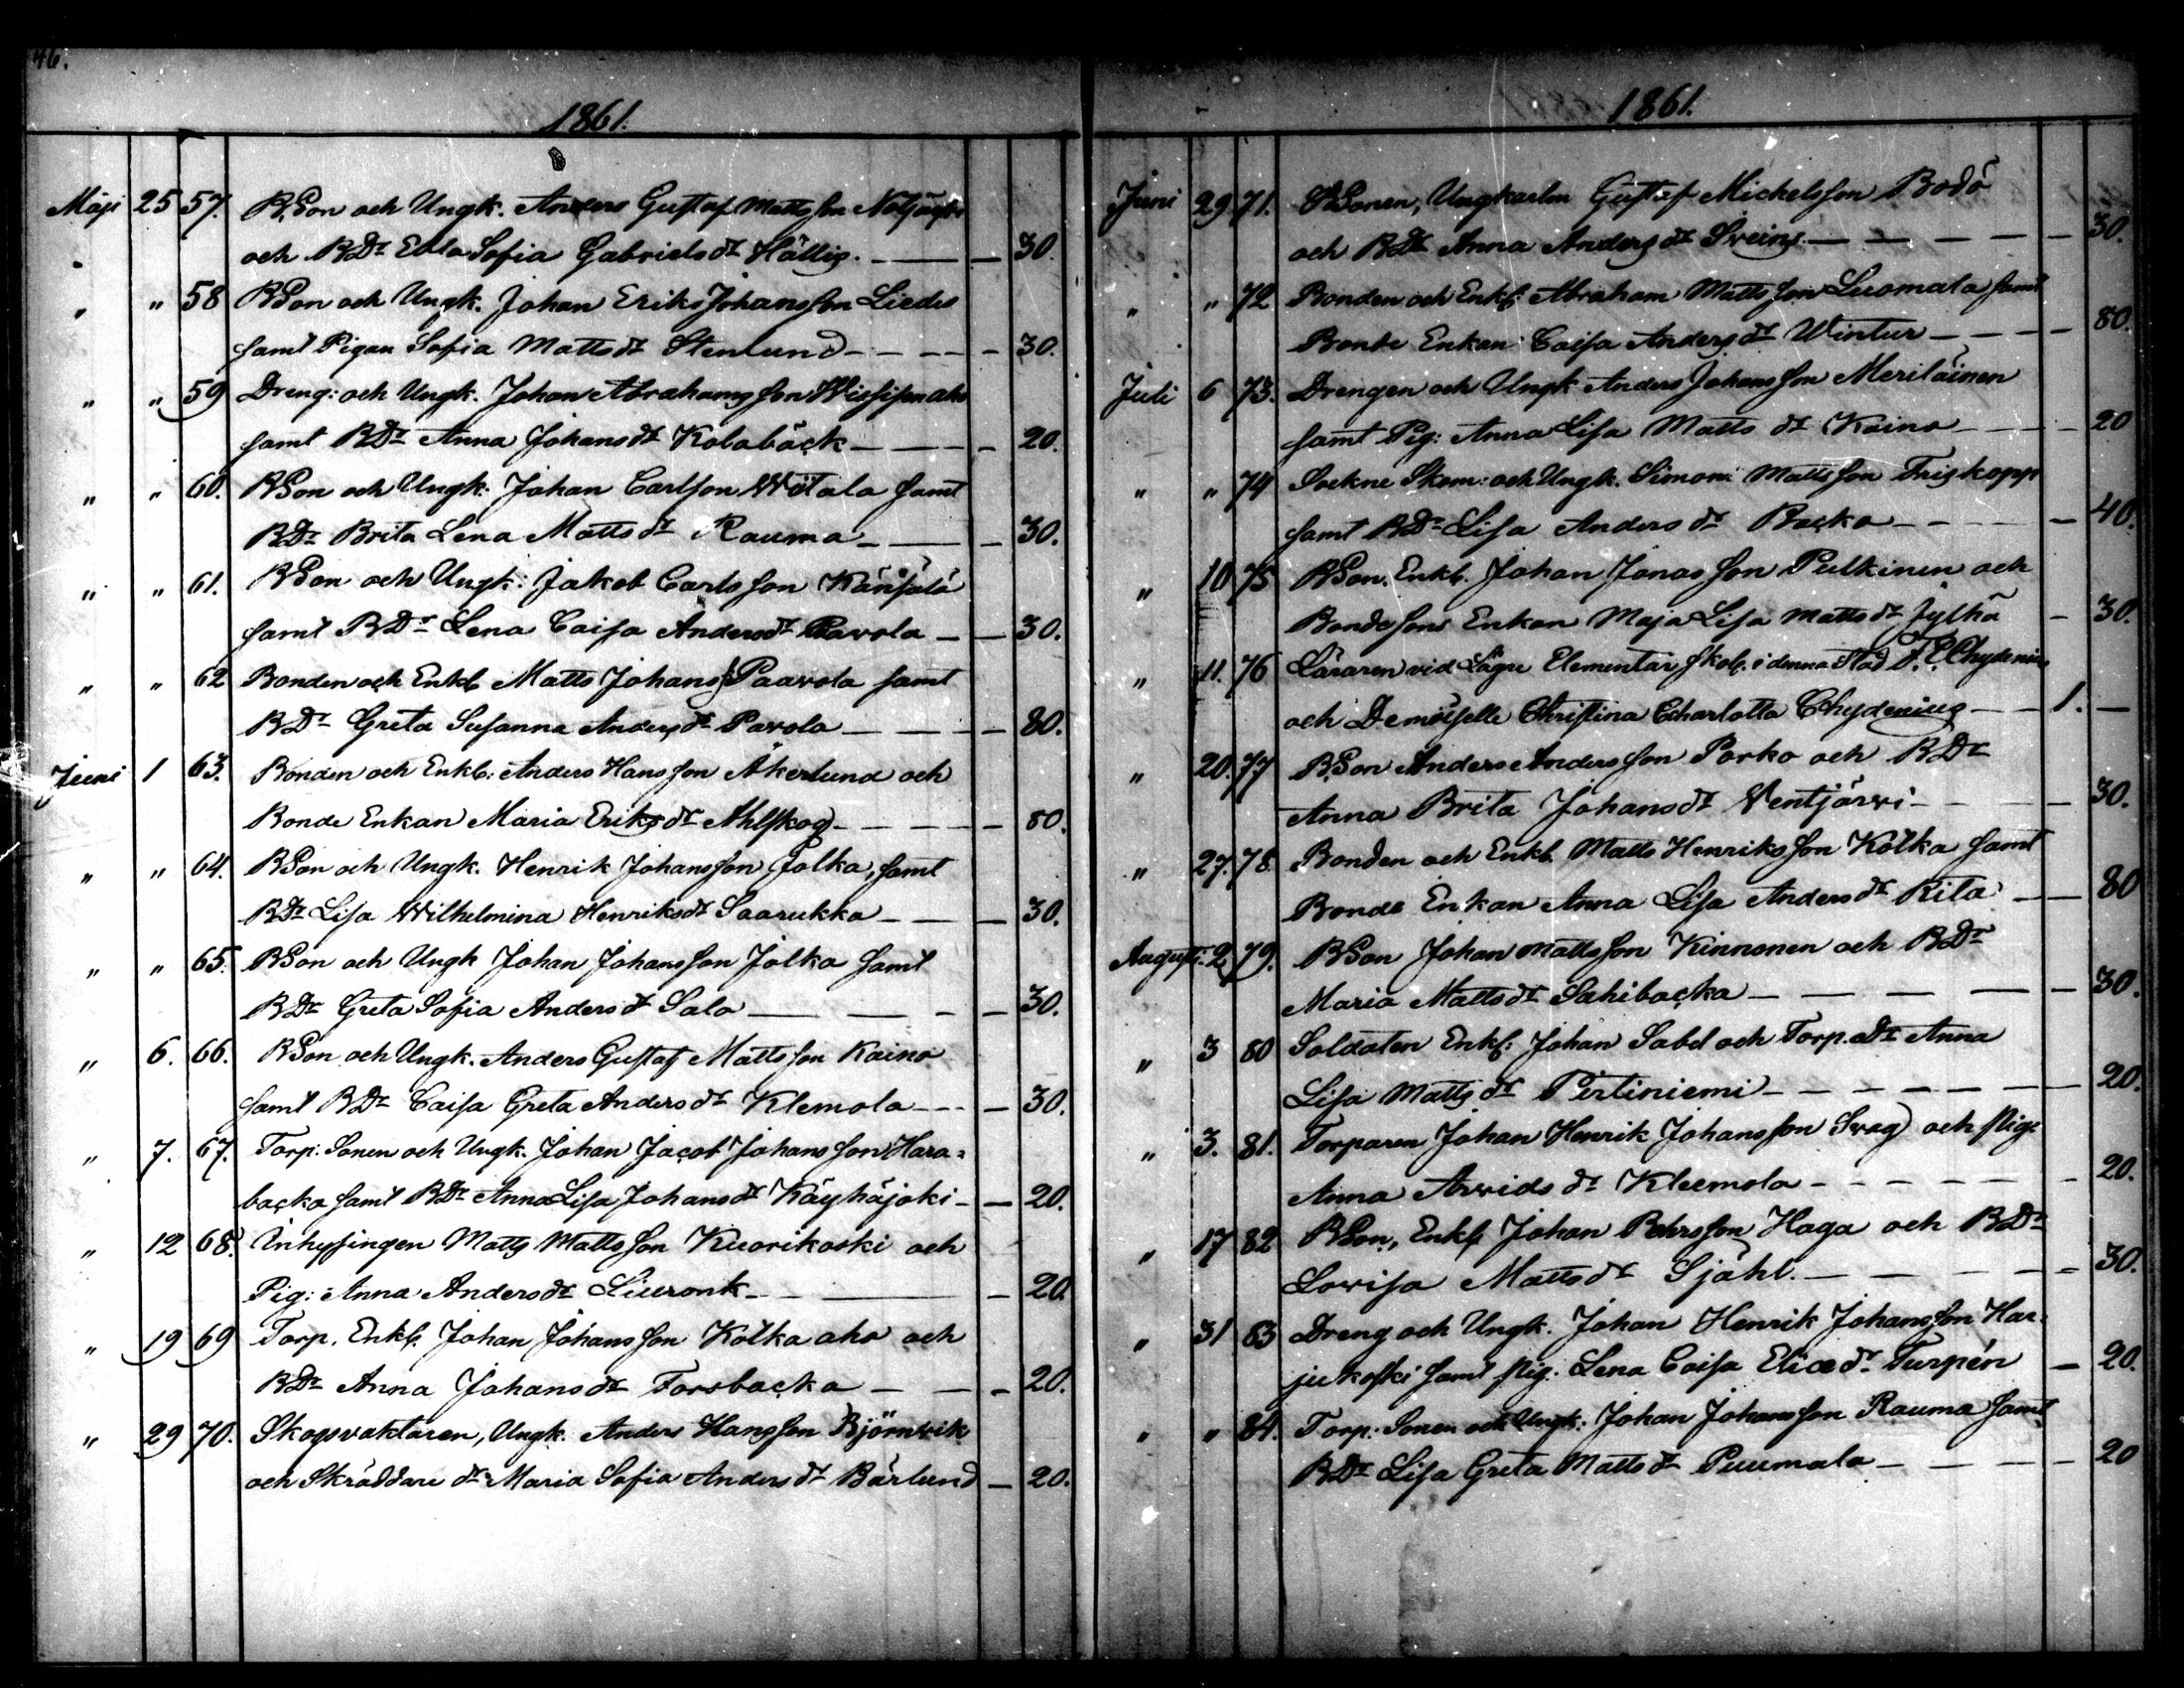 46.
1861.
Maji 25 57. BSon och Ungk. Anders Gustaf Mattsson
och BDr Edla Sofia Gabrielsdr Hällig. — — 30.
" " 58 BSon och Ungk. Johan Eriks Johansson Liedes
samt Pigan Sofia Mattsdr Stenlund - - - - 30.
" " 59 Dreng: och Ungk. Johan Abrahamsson
samt BDr Anna Johansdr Kolabäck — — - 20.
" " 60. BSon och Ungk. Johan Carlsson Witala samt
BDr Brita Lena Mattsdr Rauma — — 30.
" " 61. BSon och Ungk: Jakob Carlsson Känsälä
samt BDr Lena Caisa Andersdr Pavola — — 30.
" " 62 Bonden och Enkl. Matts Johans Paavola samt
BDr Greta Susanna Andersdr Pavola — — - 80.
Juni 1 63. Bonden och Enkl: Anders Hansson Åkerlund och
Bonde Enkan Maria Eriksdr Ahlskog - — — - 80.
" " 64. BSon och Ungk. Henrik Johansson Jolka, samt
BDr Lisa Wilhelmina Henriksdr Saarukka — — - 30.
" " 65. BSon och Ungk Johan Johansson Jolka samt
BDr Greta Sofia Andersdr Salo — — - - 30.
" 6. 66. BSon och Ungk. Anders Gustaf Mattsson Kaino
samt BDr Caisa Greta Andersdr Klemola - - - 30.
" 7. 67. Torp: Sonen och Ungk. Johan Jacob Johansson Hara=
backa samt BDr Anna Lisa Johansdr Käyhäjoki - — 20.
" 12 68. Inhysingen Matts Mattsson Kuorikoski och
Pig: Anna Andersdr Liuronk - - — - 20.
" 19 69 Torp. Enkl. Johan Johansson Kolka aho och
BDr Anna Johansdr Forsbacka — — - 20.
" 29 70. Skogsvaktaren, Ungk. Anders Hansson Björnvik
och Skräddare dr Maria Sofia Andersdr Bärlund — 20.
1861.
Juni 29 71. BSonen, Ungkarlen Gustaf Michelsson Bodö
och BDr Anna Andersdr Sveins. — — — — 30.
" " 72 Bonden och Enkl: Abraham Mattsson Luomala samt
Bonde Enkan Caisa Andersdr Wintur - — — - 80.
Juli 6 73. Drengen och Ungk Anders Johansson Meriläinen
samt Pig: Anna Lisa Mattsdr Kaino - — - 20
" " 74 Sockne Skom: och Ungk. Simon Mattsson Friskopp
samt BDr Lisa Andersdr Backa - — - — 40.
" 10 75 BSon. Enkl. Johan Jonasson Pulkinen och
Bondesons Enkan Maja Lisa Mattsdr Jylhä - 30.
" 11. 76 Läraren vid Lägre Elementar skol. i denna Stad Chydenius
och Demoiselle Christina Charlotta Chydenius — — 1. —
" 20. 77 BSon Anders Andersson Porko och BDr
Anna Brita Johansdr Wentjärvi - — — - 30.
" 27. 78. Bonden och Enkl. Matts Henriksson Kolka samt
Bonde Enkan Anna Lisa Andersdr Kita — — 80
Augusti 2 79. BSon Johan Mattsson Kinnonen och BDr
Maria Mattsdr Sahibacka — — — — 30.
" 3 80 Soldaten Enkl: Johan Sabel och Torp. Dr Anna
Lisa Mattsdr Pirtiniemi - — — — — 20.
" 3. 81. Torparen Johan Henrik Johansson Svag och Pig:
Anna Arvidsdr Kleemola - - - - - 20.
" 17 82 BSon, Enkl. Johan Pehrsson Haga och BDr
Lovisa Mattsdr Sjähl. — — — — 30.
" 31 83 Dreng och Ungk. Johan Henrik Johansson Har-
jukoski samt Pig: Lena Caisa Eliædr Turpén — 20.
" " 84. Torp: Sonen och Ungk: Johan Johansson Rauma samt
BDr Lisa Greta Mattsdr Puumala — — — 20